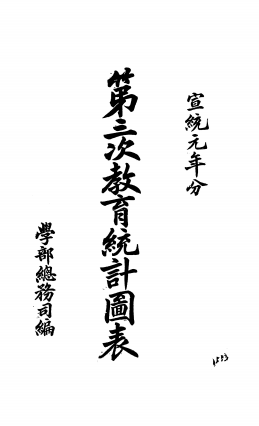 宣統元年分
第三次教育統計圖表
學部總務司編